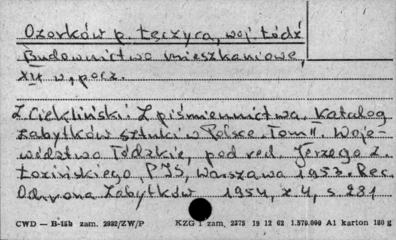 Ozorków p. Łęczyca, woj. Łódź
Budownictwo mieszkaniowe,
XIX w, pocz.
Z. Ciekliński Z piśmiennictwa. Katalog
zabytków sztuki w Polsce. Tom II. Woje-
wództwo Łódzkie, pod red. Jerzego Z.
Łozińskiego, PIS, Warszawa 1953. Rec.
Ochrona Zabytków 1954, z 4, s. 281
CWD — B-15b zam. 2992/ZW/P KZG 1 zam. 2275 19 12 62 1.570.000 A1 karton 180 g